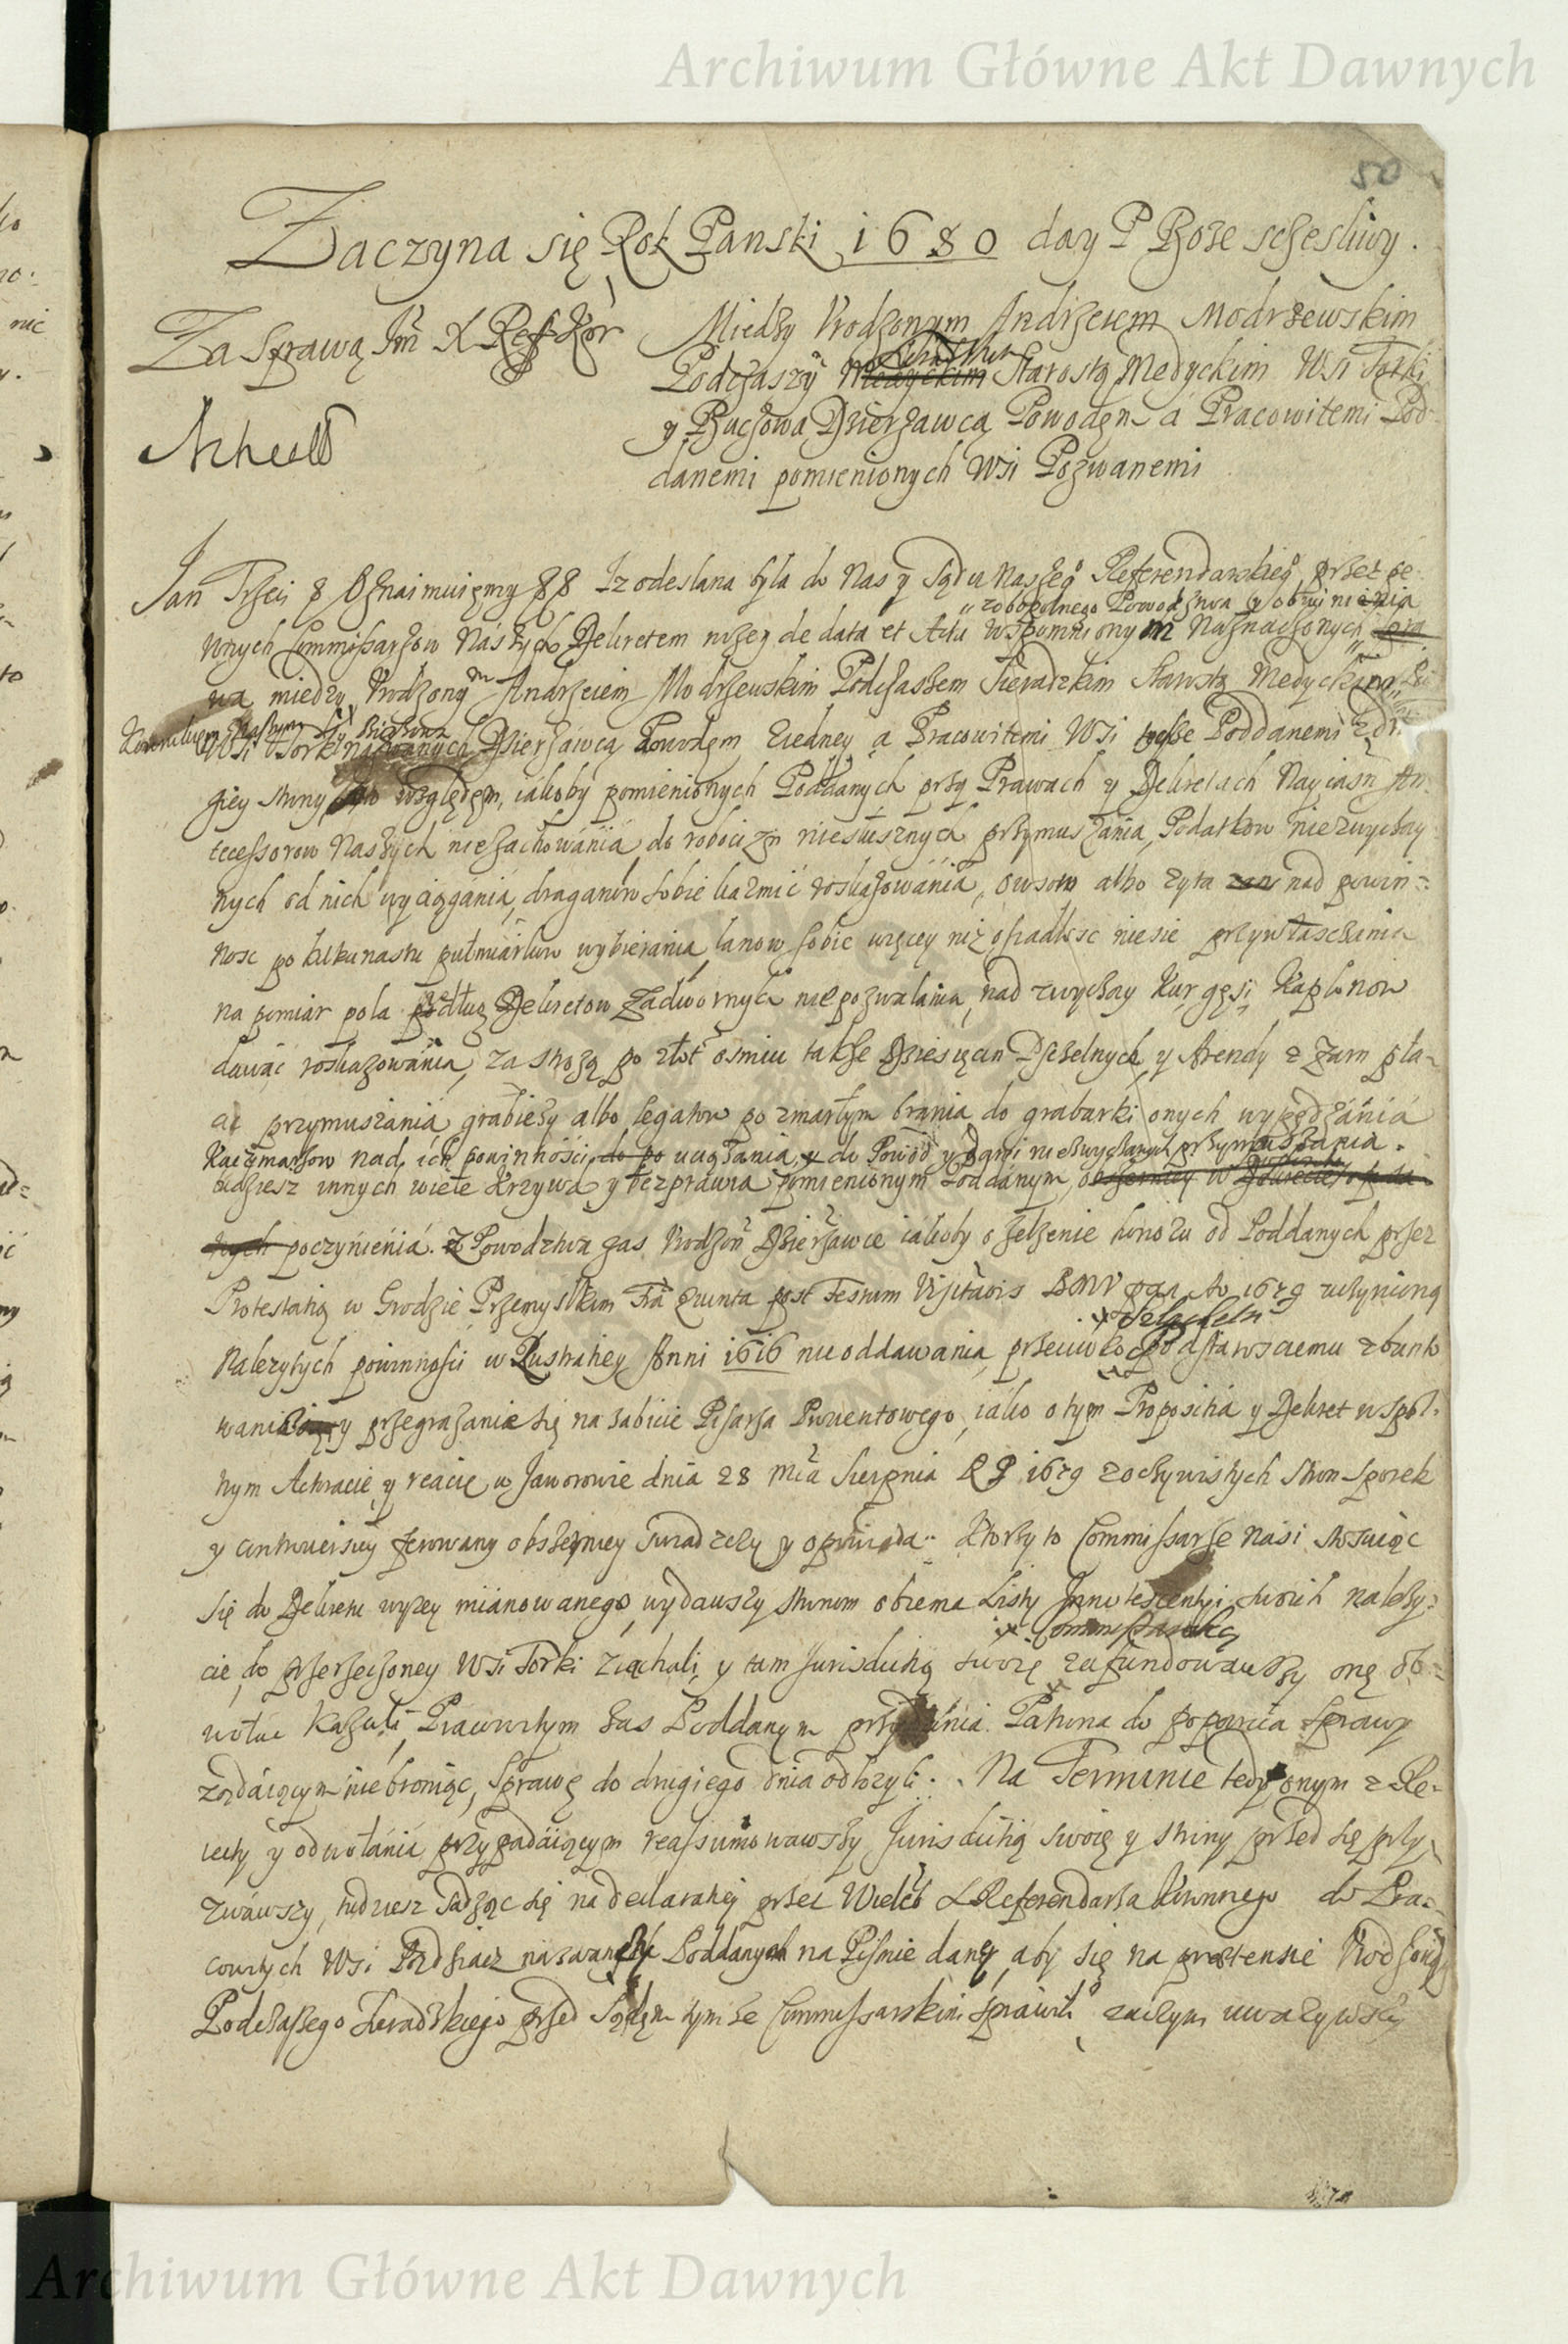 Archiwum Główne Akt Dawnych
50
Zaczyna się Rok Panski 1680 day P Boze sczesliwy.
Za Sprawą Jm X Ref Kor
Między Urodzonym Andrzeiem Modrzewskim
Podczaszy Medyckim Sieradzkim Starostą Medyckim Wsi Torki
y Buczowa Dzierzawcą Powodem a Pracowitemi Pod-
danemi pomienionych Wsi Pozwanemi
Jan Trzeci & Oznaimuiemy && Iz odeslana była do Nas y Sądu Naszego Referendarskiego przez pe-
z obopolnego Powodztwa y obwinienia
wnych Commissarzow Naszych Dekretem nizey de data et Actu wspomnionym Naznaczonych
wa miedzy Urodzonym Andrzeiem Modrzewskim Podczaszem Sieradzkim Starostą Medyckim
Wsi Torki nazwanych Dzierzawcą Powodem z iedney a Pracowitemi Wsi tychze Poddanemi z dru
giey strony względem, iakoby pomienionych Poddanych przy Prawach y Dekretach Nayiasn An-
tecessorow Naszych niezachowánia, do robocizn niesłusznych przymuszánia, Podatkow niezwyczay
nych od nich wyciągánia, draganow sobie karmić roskazowánia, owsow albo zyta nad powin=
nosc po kilkunastu pułmiarkow wybierania, łanow sobie więcey niz osiadłosc niesie przywłaszczania
na pomiar pola podług Dekretow Zadwornych niepozwalania, nad zwyczay Kur gęsi Kapłonow
dawać roskazowánia, za strozą po złot osmiu takze Dziesięcin Pszczelnych y Arendy z Zarn pła-
cić przymuszania, grabiezy albo legatow po zmarłym brania, do grabarki onych wypędzánia
Kaczmarzow nad ich powinnosci do po uciązania, y do Powod y Dani niezwyczanych przymuszania.
tudziesz innych wiele Krzywd y bezprawia pomienionym Poddánym, obszerniey w Dekrecie
poczynienia. Z Powodztwa zas Urodzon Dzierzawce iakoby o zelzenie honoru od Poddanych przez
Protestatią w Grodzie Przemyskim Fra Quinta post Festum Visitaois BMV Ao 1679 uczynioną
Nalezytych powinnosci w Lustratiey Anni 1616 nieoddawania, przeciwko Podstarosciemu zbunto
wania y przegrazanie się na zabicie Pisarza Prowentowego, iako o tym Propositia y Dekret w spol-
nym Actoracie y reacie w Jaworowie dnia 28 Mca Sierpnia RP 1679 z oczywistych stron sporek
y controversiey ferowany obszerniey swiadczy y opiewa. Ktorzy to Commissarze nasi stosuiąc
się do Dekretu wyzey mianowanego, wydawszy stronom obiema Listy Innotescentyi swoich nalezy=
Commissarską
cie do przerzeczoney Wsi Torki ziachali, y tam Jurisdictią swoię zafundowawszy onę ob=
wołać kazali, Pracowitym zas Poddanym przydania Patrona do poparcia sprawy
ządáiącym niebroniąc, sprawę do drugiego dnia odłozyli. Na Terminie tedy onym z Re-
lecty y odwołánia przypadáiącym reassumowawszy Jurisdictią swoię y strony przed się przy
zwáwszy, tudziesz sadząc się na declaratiey przez Wieleb X Referendarza Koronnego do Pra=
cowitych Wsi nazwanych Poddanych na Pismie daney aby się na pretensie Urodzonego
Podczaszego Sieradzkiego przed Sądem tymze Commissarskim sprawili, zaczym uwazywszy
Archiwum Główne Akt Dawnych